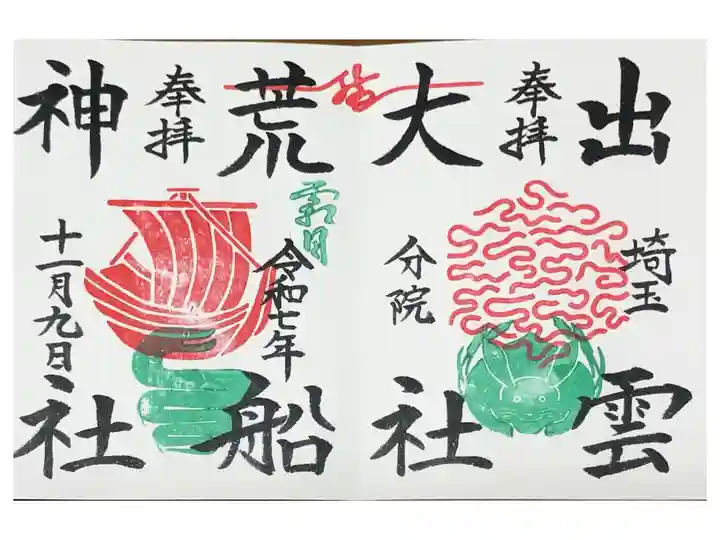 出雲
埼玉
奉拝
大社
分院
霜月
荒船
令和七年
奉拝
神社
十一月九日